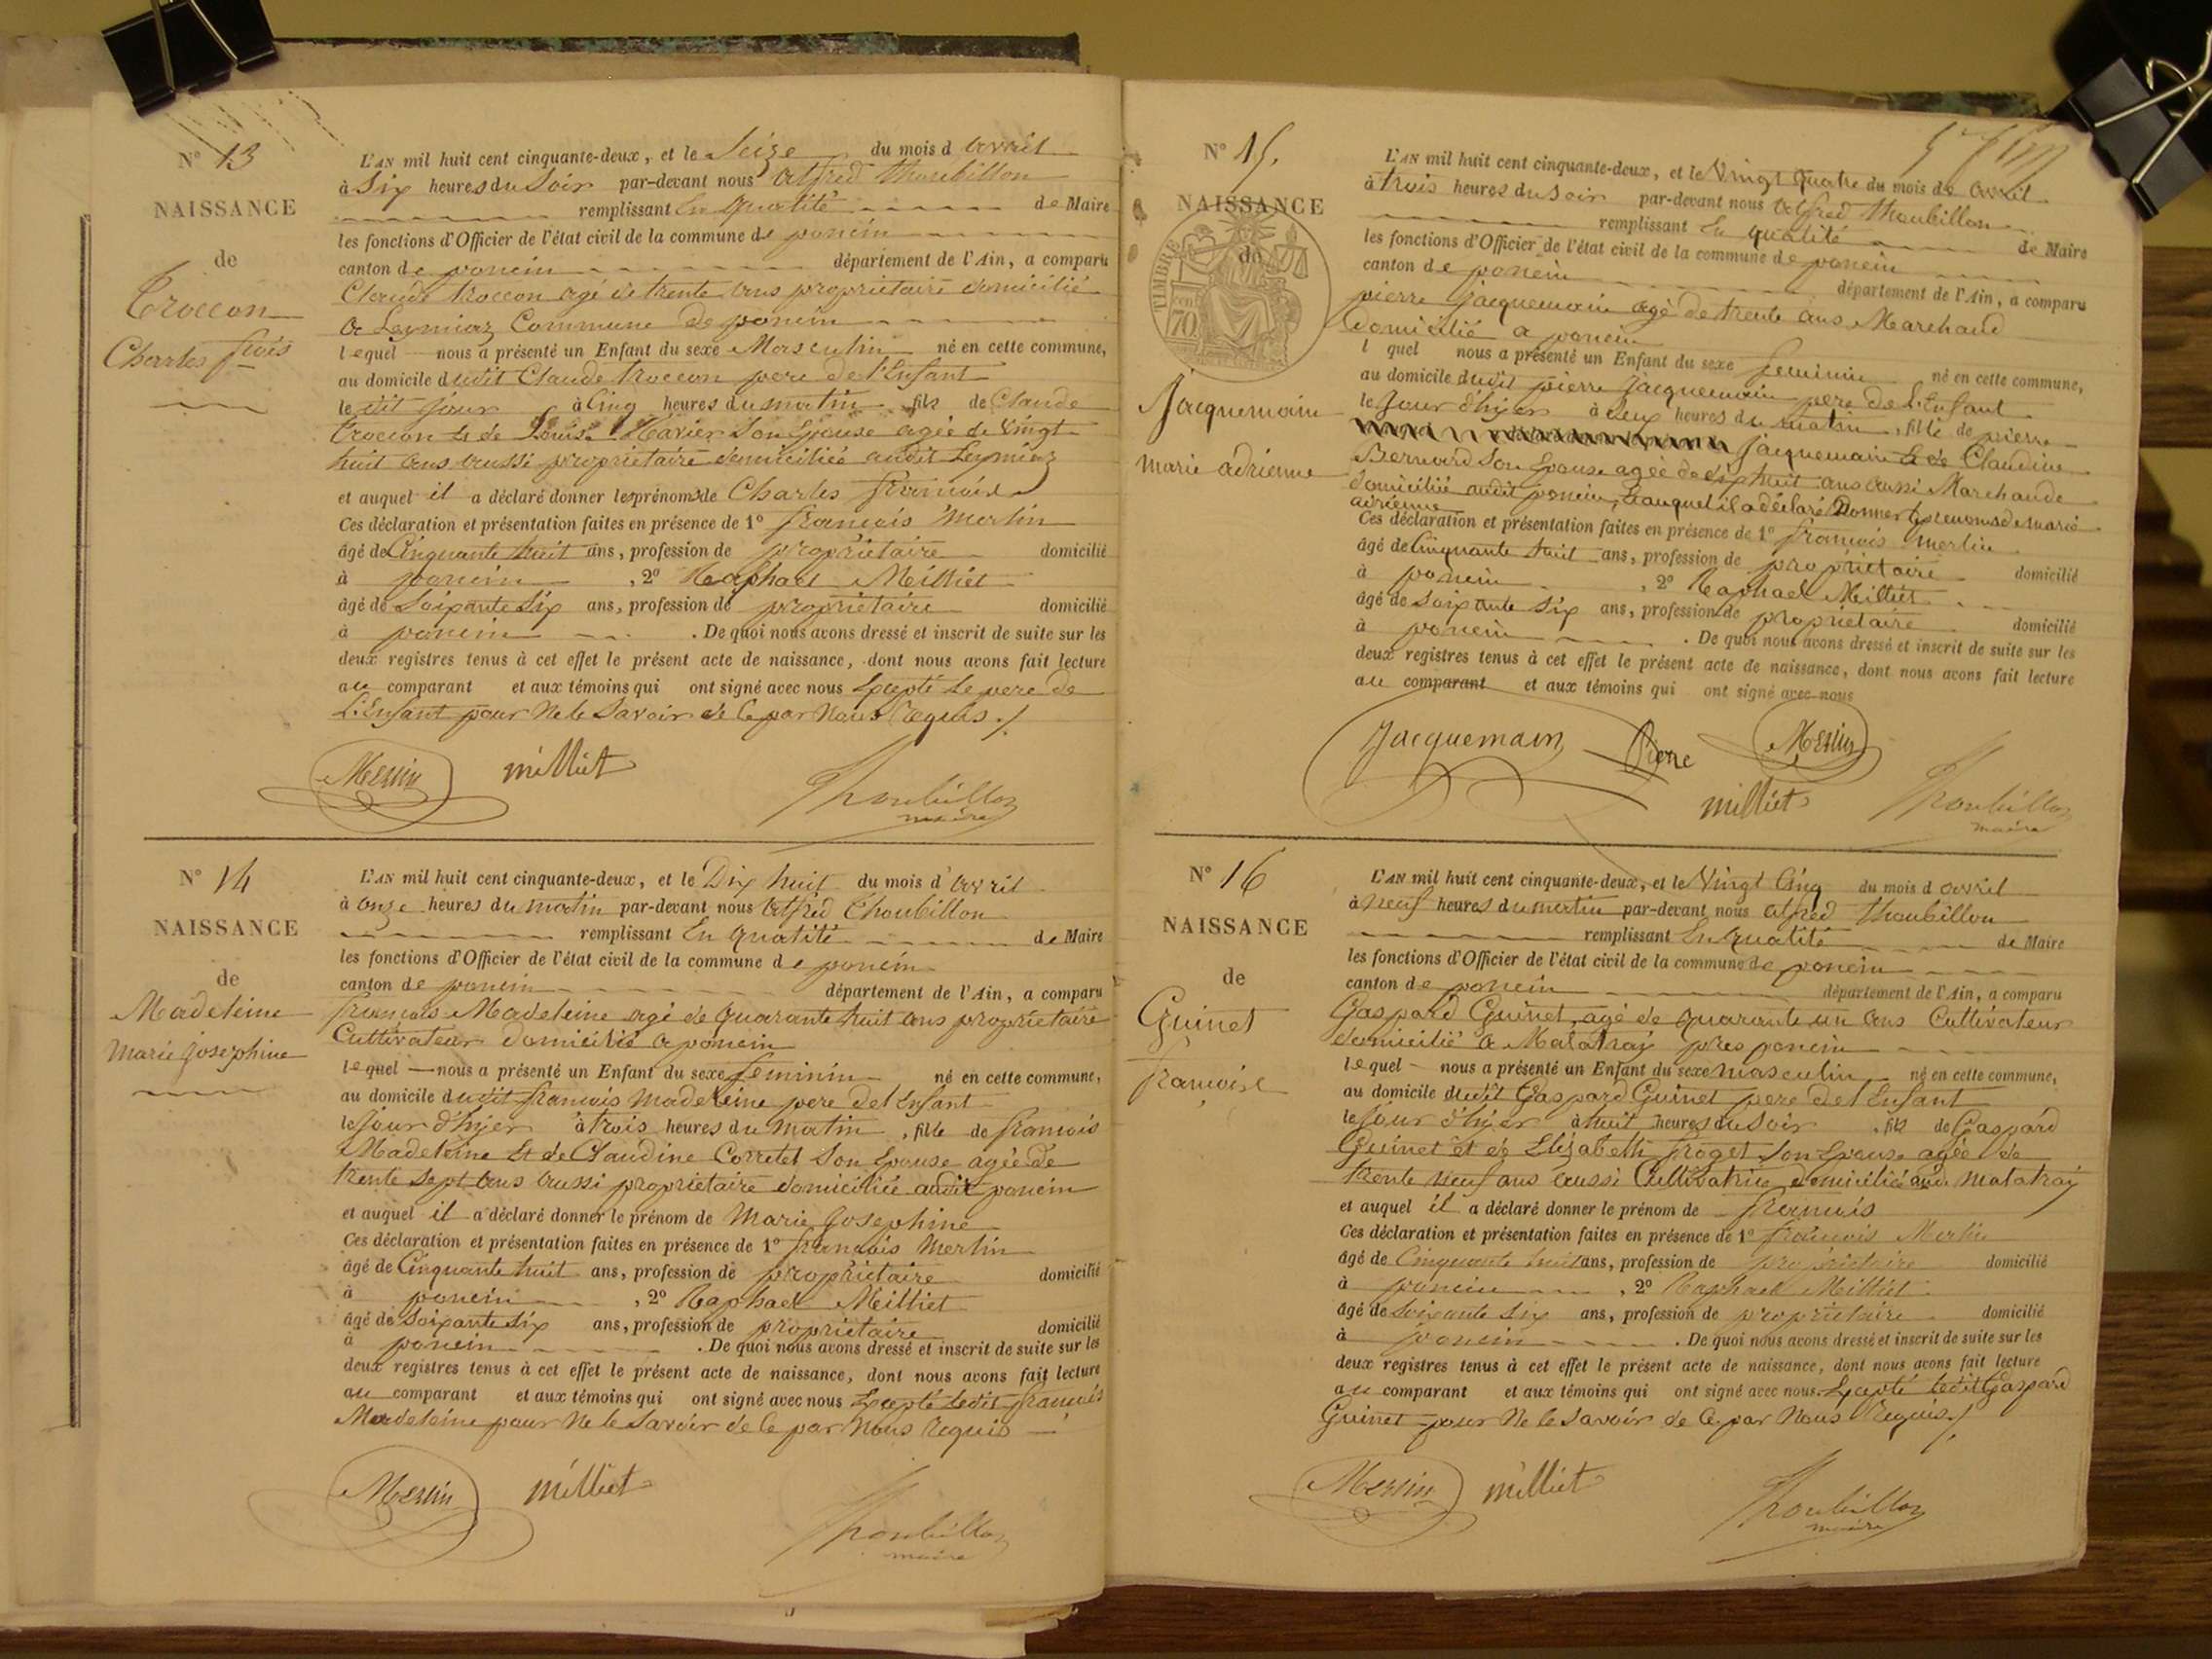 N° 13
NAISSANCE
de
Troccon
Charles fçois
L'AN mil huit cent cinquante-deux, et le Seize du mois d avril
à Six heures du Soir par-devant nous Alfred Thoubillon
remplissant En qualité de Maire
les fonctions d'Officier de l'état civil de la commune de poncin
canton de poncin département de l'Ain, a comparu
Claude troccon agé de trente ans propriétaire domicilié
a Leymiaz Commune de poncin
lequel nous a présenté un Enfant du sexe Masculin né en cette commune,
au domicile dudit Claude troccon pere de l'Enfant
le dit jour à Cinq heures du matin, fils de Claude
troccon et de Louise Xavier Son Epouse agée de Vingt
huit ans aussi propriétaire domiciliée audit Leymiaz
et auquel il a déclaré donner les prénoms de Charles françois
Ces déclaration et présentation faites en présence de 1° françois Merlin
âgé de Cinquante huit ans, profession de propriétaire domicilié
à poncin, 2° Raphael Milliet
âgé de Soixante Six ans, profession de propriétaire domicilié
à poncin. De quoi nous avons dressé et inscrit de suite sur les
deux registres tenus à cet effet le présent acte de naissance, dont nous avons fait lecture
au comparant et aux témoins qui ont signé avec nous Excepté Le pere de
L'Enfant pour Ne le Savoir de Ce par Nous Requis ./.
Merlin milliet Thoubillon
maire
N° 14
NAISSANCE
de
Madeleine
Marie Josephine
L'AN mil huit cent cinquante-deux, et le Dix huit du mois d'avril
à onze heures du matin par-devant nous Alfred Thoubillon
remplissant En qualité de Maire
les fonctions d'Officier de l'état civil de la commune de poncin
canton de poncin département de l'Ain, a comparu
françois Madeleine agé de quarante huit ans propriétaire
Cultivateur domicilié a poncin
lequel nous a présenté un Enfant du sexe feminin né en cette commune,
au domicile dudit françois Madeleine pere de l'Enfant
le Jour d'hyer à trois heures du Matin, fille de françois
Madeleine Et de Claudine Corretel Son Epouse agée de
trente Sept ans aussi propriétaire domiciliée audit poncin
et auquel il a déclaré donner le prénom de Marie Josephine
Ces déclaration et présentation faites en présence de 1° françois Merlin
âgé de Cinquante huit ans, profession de propriétaire domicilié
à poncin, 2° Raphael Milliet
âgé de Soixante Six ans, profession de propriétaire domicilié
à poncin. De quoi nous avons dressé et inscrit de suite sur les
deux registres tenus à cet effet le présent acte de naissance, dont nous avons fait lecture
au comparant et aux témoins qui ont signé avec nous Excepté Ledit françois
Madeleine pour Ne le Savoir de Ce par Nous Requis
Merlin milliet Thoubillon
maire
N° 15.
NAISSANCE
de
TIMBRE
70
Jacquemain
Marie adrienne
L'AN mil huit cent cinquante-deux, et le Vingt quatre du mois de avril
à trois heures du soir par-devant nous Alfred Thoubillon
remplissant En qualité de Maire
les fonctions d'Officier de l'état civil de la commune de poncin
canton de poncin département de l'Ain, a comparu
pierre Jacquemain agé de trente ans Marchand
Domicilié a poncin
l quel nous a présenté un Enfant du sexe feminin né en cette commune,
au domicile dudit pierre Jacquemain pere de l'Enfant
le Jour d'hyer à deux heures du matin, fille de pierre
Jacquemain et de Claudine
Bernard Son Epouse agée de dix huit ans aussi Marchande
domiciliée audit poncin, et auquel il a déclaré Donner les prenoms de marie
adrienne
Ces déclaration et présentation faites en présence de 1° françois Merlin
âgé de Cinquante huit ans, profession de propriétaire domicilié
à poncin, 2° Raphael Milliet
âgé de Soixante Six ans, profession de propriétaire domicilié
à poncin. De quoi nous avons dressé et inscrit de suite sur les
deux registres tenus à cet effet le présent acte de naissance, dont nous avons fait lecture
au comparant et aux témoins qui ont signé avec nous
Jacquemain Pierre Merlin
milliet Thoubillon
maire
N° 16
NAISSANCE
de
Guinet
françois
L'AN mil huit cent cinquante-deux, et le Vingt Cinq du mois d avril
à Neuf heures du matin par-devant nous alfred Thoubillon
remplissant En qualité de Maire
les fonctions d'Officier de l'état civil de la commune de poncin
canton de poncin département de l'Ain, a comparu
Gaspard Guinet, agé de quarante un ans Cultivateur
domicilié a Malatray pres poncin
lequel nous a présenté un Enfant du sexe masculin né en cette commune,
au domicile dudit Gaspard Guinet pere de l'Enfant
le Jour d'hyer à huit heures du Soir, fils de Gaspard
Guinet et de Elizabeth froget Son Epouse agée de
trente neuf ans aussi Cultivatrice domiciliée aud. Malatray
et auquel il a déclaré donner le prénom de françois
Ces déclaration et présentation faites en présence de 1° françois Merlin
âgé de Cinquante huit ans, profession de propriétaire domicilié
à poncin, 2° Raphael Milliet
âgé de Soixante Six ans, profession de propriétaire domicilié
à poncin. De quoi nous avons dressé et inscrit de suite sur les
deux registres tenus à cet effet le présent acte de naissance, dont nous avons fait lecture
au comparant et aux témoins qui ont signé avec nous. Excepté Ledit Gaspard
Guinet pour Ne le Savoir de Ce par Nous Requis ./.
Merlin milliet Thoubillon
maire